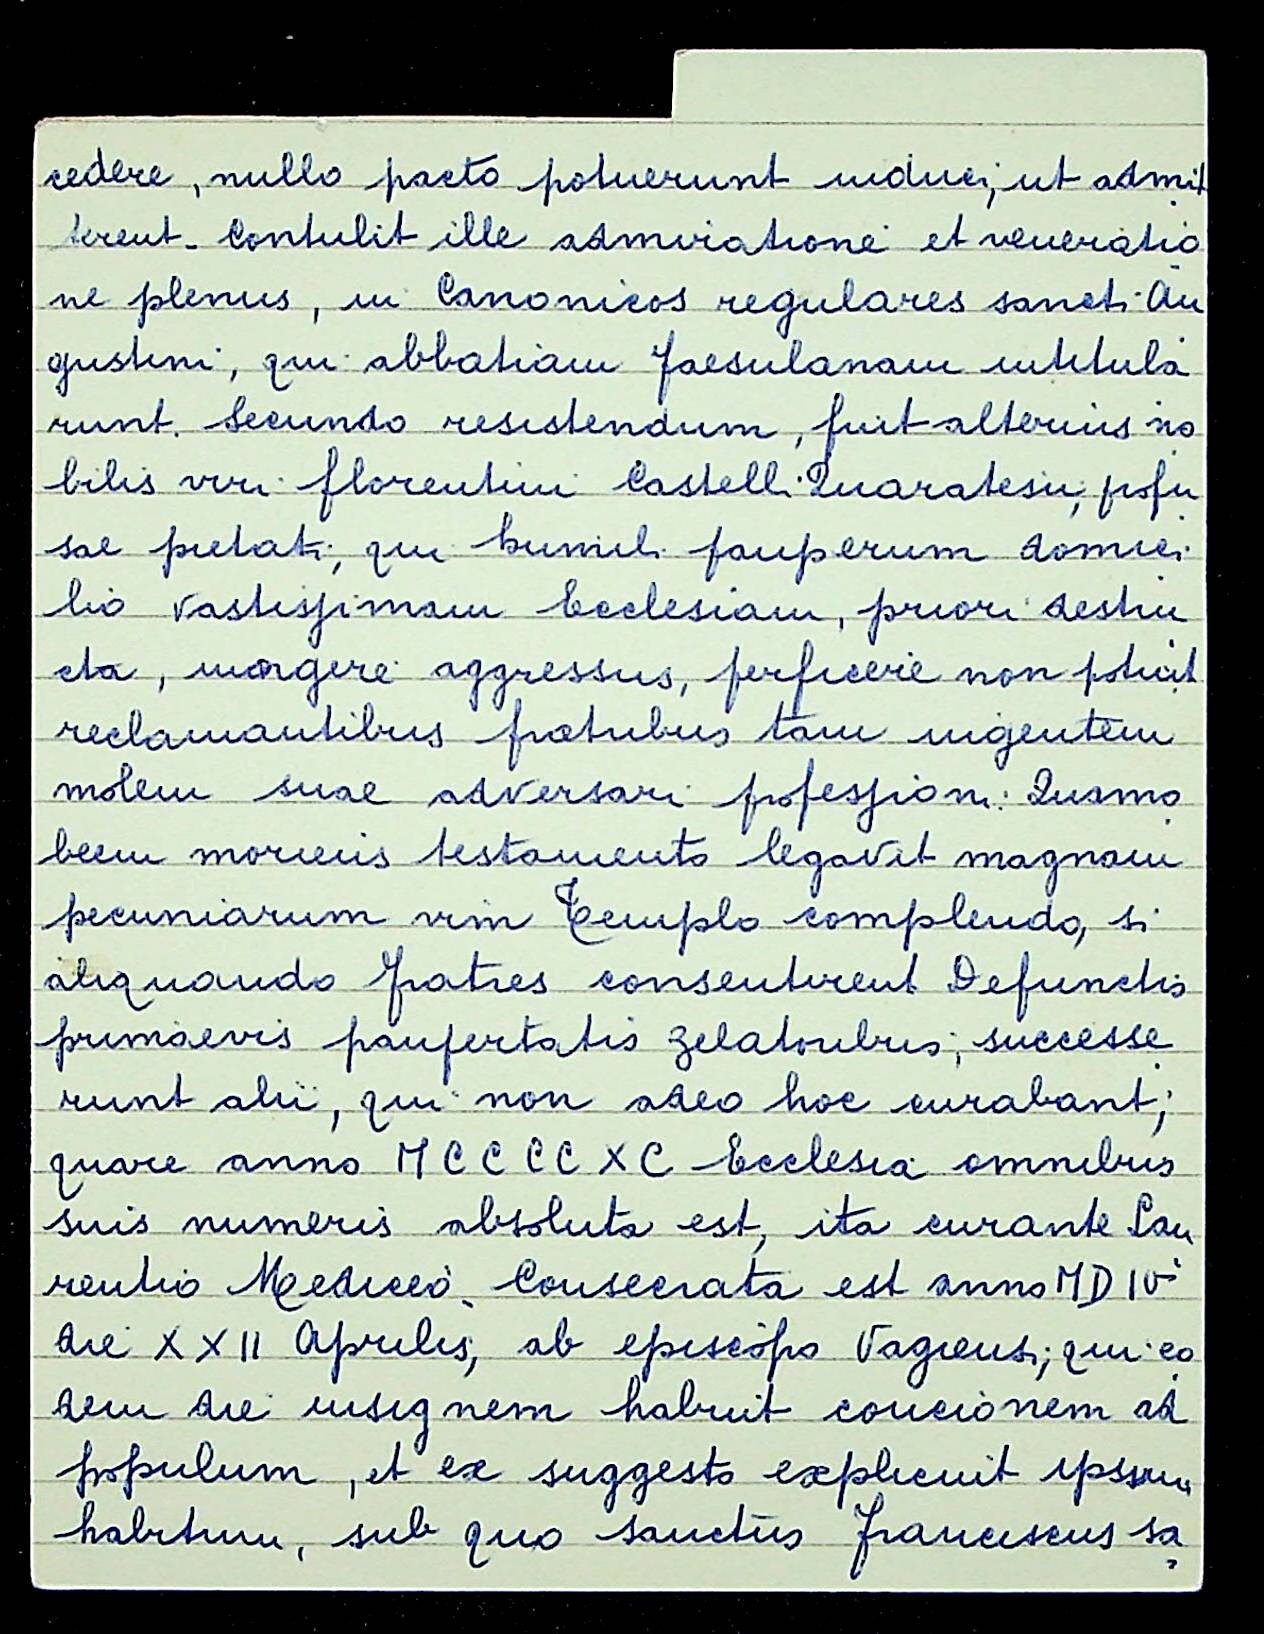 cedere, nullo pacto potuerunt induci, ut admit
terent. Contulit ille admiratione et veneratio
ne plenus, in Canonicos regulares sancti Au
gustini, qui abbatiam Faesulanam intitula
runt. Secundo resistendum, fuit alterius no
bilis viri florentini Castelli Quaratesii, profu
sae pietati, qui humili pauperum domici
lio vastissimam Ecclesiam, priori destru
cta, iungere aggressus, perficere non potuit
reclamantibus fratribus tam ingentem
molem suae adversari professioni. Quamo
brem moriens testamento legavit magnam
pecuniarum vim Templo complendo, si
aliquando fratres consentirent Defunctis
primaevis paupertatis zelatoribus, successe
runt alii, qui non adeo hoc curabant;
quare anno MCCCCXC Ecclesia omnibus
suis numeris absoluta est, ita curante Lau
rentio Mediceo. Consecrata est anno MDIV
die XXII Aprilis, ab episcopo Vagiensi, qui eo
dem die insignem habuit concionem ad
populum, et ex suggesto explicuit ipsum
habitum, sub quo sanctus Franciscus sa